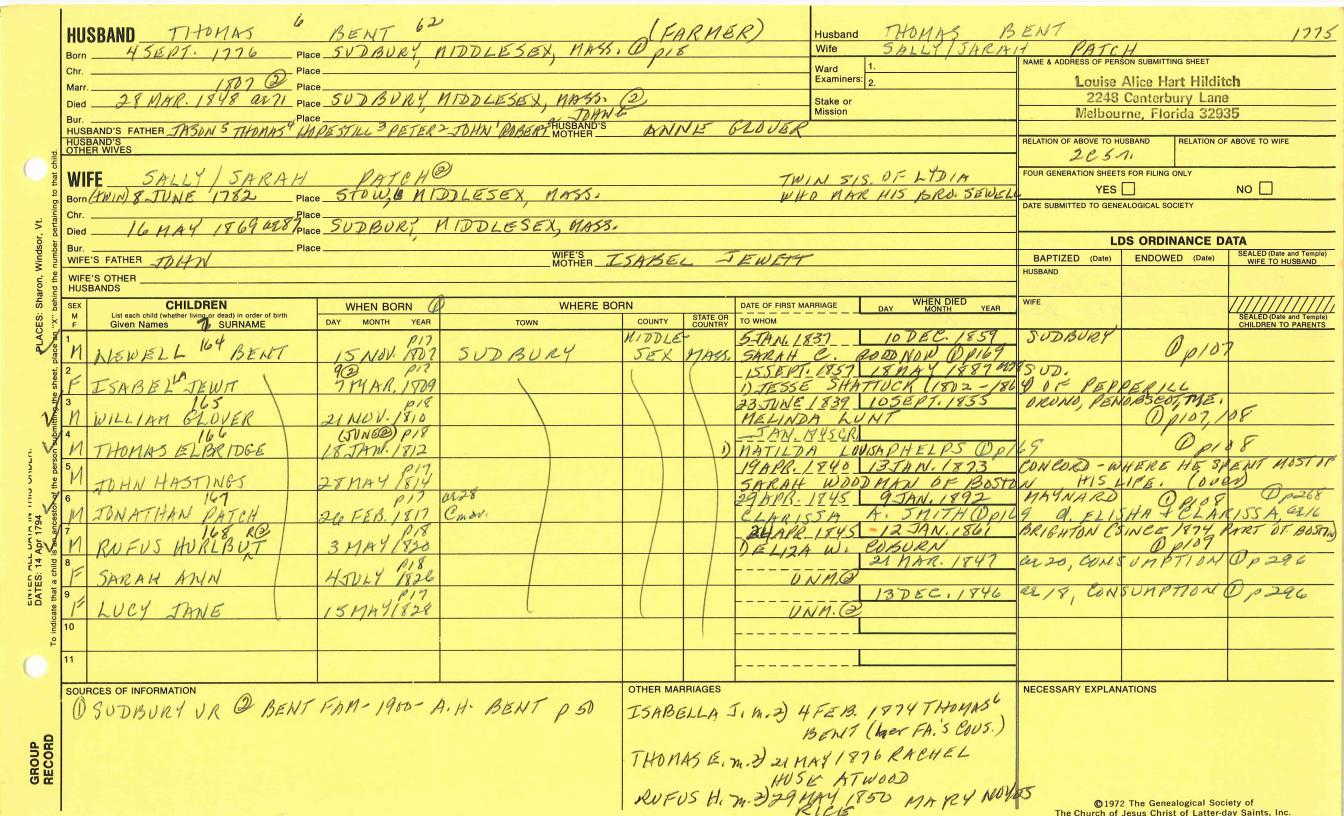 HUSBAND THOMAS 6 BENT 62 (FARMER)
Born 4 SEPT. 1776 Place SUDBURY, MIDDLESEX, MASS. ① p18
Chr. Place
Marr. 1807 ② Place
Died 28 MAR. 1848 ae71 Place SUDBURY, MIDDLESEX, MASS. ②
Bur. Place
HUSBAND'S FATHER JASON 5 THOMAS 4 HOPESTILL 3 PETER 2 JOHN ROBERT JOHN HUSBAND'S MOTHER ANNE GLOVER
HUSBAND'S OTHER WIVES
WIFE SALLY/SARAH PATCH ② TWIN SIS. OF LYDIA
Born (TWIN) 8 JUNE 1782 Place STOW, MIDDLESEX, MASS. WHO MAR HIS BRO. SEWELL
Chr. Place
Died 16 MAY 1869 ae87 Place SUDBURY, MIDDLESEX, MASS.
Bur. Place
WIFE'S FATHER JOHN WIFE'S MOTHER ISABEL JEWETT
WIFE'S OTHER HUSBANDS
Husband THOMAS BENT 1775
Wife SALLY/SARAH PATCH
Ward Examiners: 1.
2.
Stake or Mission
NAME & ADDRESS OF PERSON SUBMITTING SHEET
Louise Alice Hart Hilditch
2248 Canterbury Lane
Melbourne, Florida 32935
RELATION OF ABOVE TO HUSBAND RELATION OF ABOVE TO WIFE
FOUR GENERATION SHEETS FOR FILING ONLY
YES NO
DATE SUBMITTED TO GENEALOGICAL SOCIETY
LDS ORDINANCE DATA
BAPTIZED (Date) ENDOWED (Date) SEALED (Date and Temple) WIFE TO HUSBAND
HUSBAND
WIFE
SEALED (Date and Temple) CHILDREN TO PARENTS
SEX M F
CHILDREN
List each child (whether living or dead) in order of birth
Given Names 7 SURNAME
WHEN BORN ①
DAY MONTH YEAR
WHERE BORN
TOWN COUNTY STATE OR COUNTRY
DATE OF FIRST MARRIAGE
TO WHOM
WHEN DIED
DAY MONTH YEAR
1 164 p17 MIDDLE- 5 JAN. 1837 10 DEC. 1859 SUDBURY
M NEWELL BENT 15 NOV. 1807 SUDBURY SEX MASS. SARAH C. GOODNOW ① p169 ① p107
2 9② p17 15 SEPT. 1857 18 MAY 1887 SUD.
F ISABEL LA JEWT 7 MAR. 1809 1) JESSE SHATTUCK (1802-186 OF PEPPERILL
3 165 p18 23 JUNE 1839 10 SEPT. 1855 ORONO, PENOBSCOT, ME.
M WILLIAM GLOVER 21 NOV. 1810 MELINDA LUNT ① p107,108
4 166 (JUNE②) p18
M THOMAS ELBRIDGE 18 JAN. 1812 1) MATILDA LOUISA PHELPS ① p169 ① p108
5 p17 19 APR. 1840 13 JAN. 1873 CONCORD - WHERE HE SPENT MOST OF
M JOHN HASTINGS 28 MAY 1814 SARAH WOODMAN OF BOSTON HIS LIFE. (OVER)
6 167 p17 29 APR. 1845 9 JAN. 1892 MAYNARD ① p108 ① p268
M JONATHAN PATCH 26 FEB. 1817 CLARISSA A. SMITH ① p169 d. ELISHA + CLARISSA
7 168 R② p18 24 APR. 1845 12 JAN. 1861 BRIGHTON (SINCE 1874 PART OF BOSTON
M RUFUS HURLBUT 3 MAY 1820 DELIZA W. COBURN ① p109
8 p18 21 MAR. 1847 ae 20, CONSUMPTION ① p296
F SARAH ANN 4 JULY 1826 UNM.②
9 p17 13 DEC. 1846 ae 18, CONSUMPTION ① p296
F LUCY JANE 15 MAY 1828 UNM.②
10
11
SOURCES OF INFORMATION
① SUDBURY VR ② BENT FAM - 1900 - A.H. BENT p 50
OTHER MARRIAGES
ISABELLA J. m. 2) 4 FEB. 1874 THOMAS 6
BENT (her FA.'S COUS.)
THOMAS E. m. 2) 21 MAY 1876 RACHEL
HUSE ATWOOD
RUFUS H. m. 2) 29 MAY 1850 MARY NOYES
RICE
NECESSARY EXPLANATIONS
©1972 The Genealogical Society of
The Church of Jesus Christ of Latter-day Saints, Inc.
PLACES: Sharon, Windsor, Vt.
ENTER ALL DATA IN THIS ORDER:
DATES: 14 Apr 1794
To indicate that a child is an ancestor of the person submitting the sheet, place an "X" behind the number pertaining to that child.
GROUP RECORD